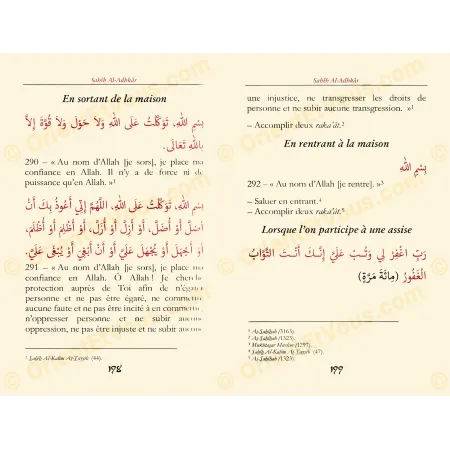 Sahîh Al-Adhkâr
En sortant de la maison
بِسْمِ اللَّهِ، تَوَكَّلْتُ عَلَى اللَّهِ وَلاَ حَوْلَ وَلاَ قُوَّةَ إِلاَّ
بِاللَّهِ تَعَالَى.
290 – « Au nom d'Allah [je sors], je place ma
confiance en Allah. Il n'y a de force ni de
puissance qu'en Allah. »¹
بِسْمِ اللَّهِ، تَوَكَّلْتُ عَلَى اللَّهِ، اللَّهُمَّ إِنِّي أَعُوذُ بِكَ أَنْ
أَضِلَّ أَوْ أُضَلَّ، أَوْ أَزِلَّ أَوْ أُزَلَّ، أَوْ أَظْلِمَ أَوْ أُظْلَمَ،
أَوْ أَجْهَلَ أَوْ يُجْهَلَ عَلَيَّ، أَوْ أَنْ أَبْغِيَ أَوْ يُبْغَى عَلَيَّ.
291 – « Au nom d'Allah [je sors], je place ma
confiance en Allah. Ô Allah ! Je cherche
protection auprès de Toi afin de n'égarer
personne et ne pas être égaré, ne commettre
aucune faute et ne pas être incité à en commettre,
n'oppresser personne et ne subir aucune
oppression, ne pas être injuste et ne subir aucune
¹ Sahîh Al-Kalim At-Tayyib (44).
١٩٨
Sahîh Al-Adhkâr
une injustice, ne transgresser les droits de
personne et ne subir aucune transgression. »¹
– Accomplir deux raka'ât.²
En rentrant à la maison
بِسْمِ اللَّهِ
292 – « Au nom d'Allah [je rentre]. »³
– Saluer en entrant.⁴
– Accomplir deux raka'ât.⁵
Lorsque l'on participe à une assise
رَبِّ اغْفِرْ لِي وَتُبْ عَلَيَّ إِنَّكَ أَنْتَ التَّوَّابُ
الْغَفُورُ (مِائَةَ مَرَّةٍ)
¹ As-Sahîhah (3163).
² As-Sahîhah (1323).
³ Mukhtasar Muslim (1297).
⁴ Sahîh Al-Kalim At-Tayyib (47).
⁵ As-Sahîhah (1323).
١٩٩